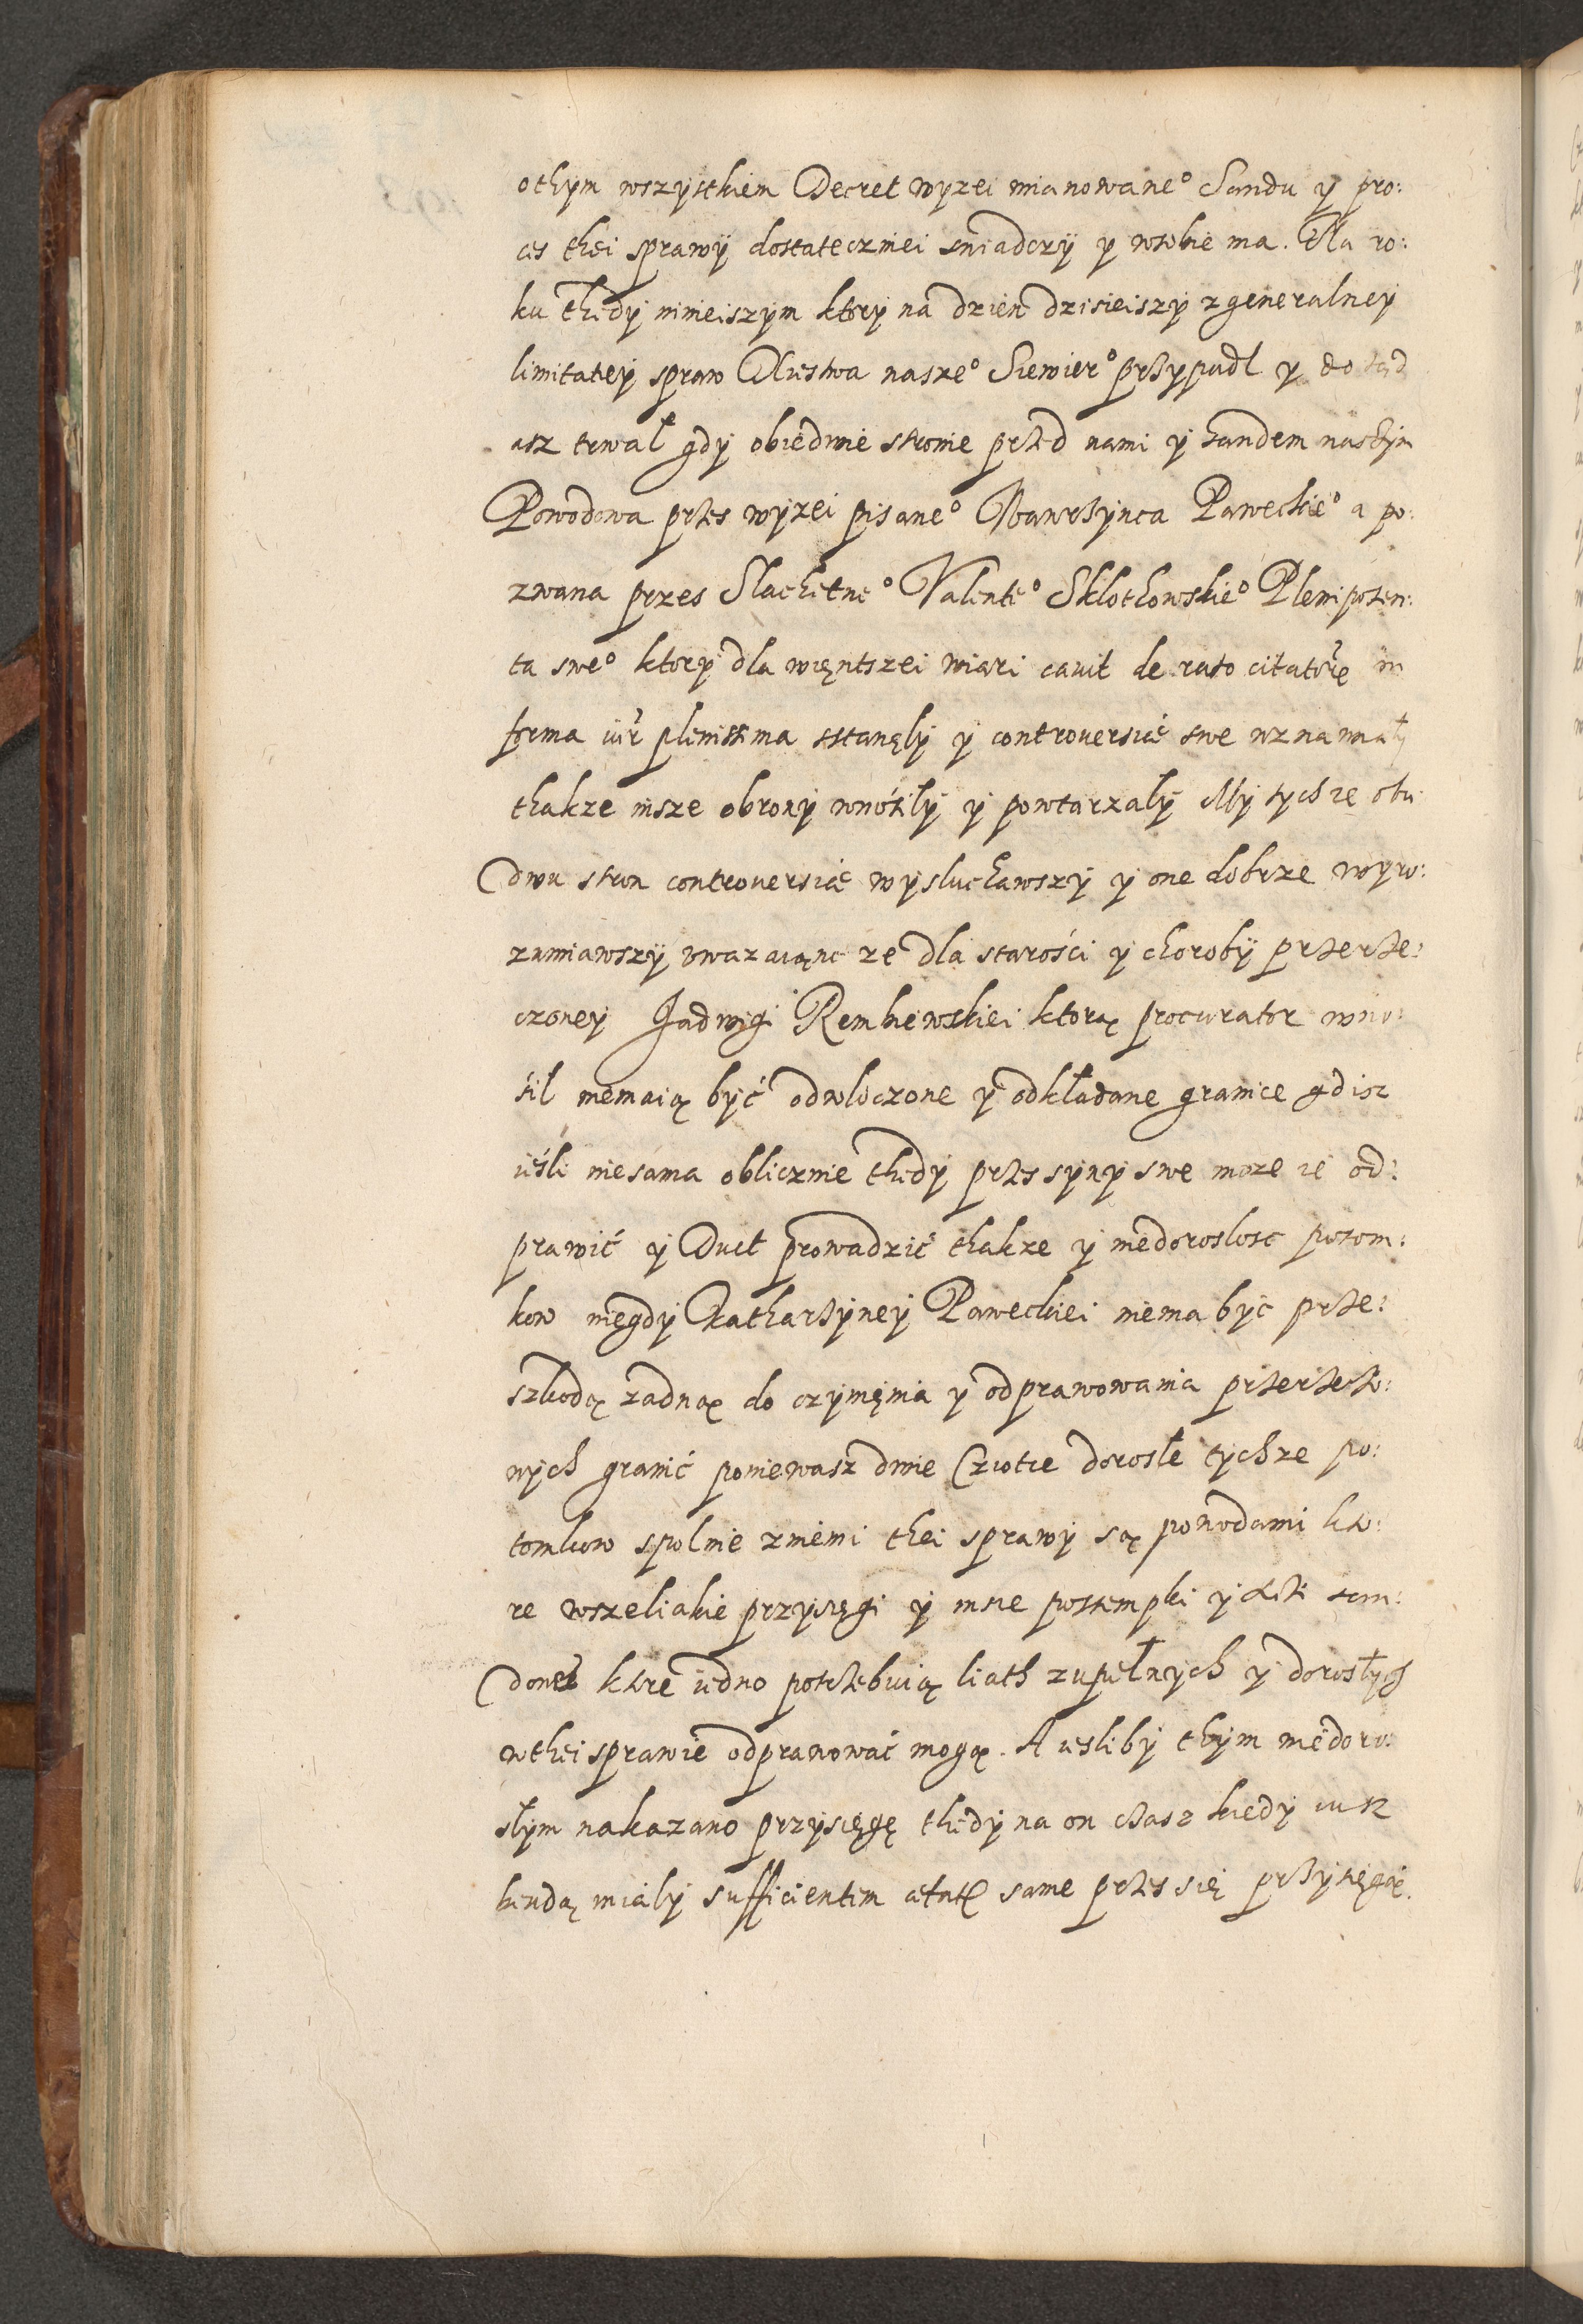 othym wszystkiem Decret wyzei mianowane° Sandu y pro:
ces thei sprawy dostatecznei swiadczy y wsobie ma. Na ro:
ku thedy ninieiszym ktory na dzien dzisieiszy z generalney
limitatiey spraw Xiestwa nasze° Siewier° przypadl y dotąd
asz trwał gdy obiedwie stronie przed nami y sandem naszym
Powodowa przes wyzei pisane° Wawrzynca Paweckie° a po:
zwana przes Slachetne° Valente° Sklothowskie° Plenipoten:
ta swe° ktory dla więntszei wiari cavit de rato citatore in
forma iur plenissima sstanęly y controversiae swe wznawiały
thakze insze obrony wnósily y powtarzały My tychze obu
dwu stron controversiae wysluchawszy y one dobrze wyro:
zumiawszy uwazaiąnc ze dla starości y choroby przerze:
czoney Jadwigi Rembiewskiei ktorą procurator wno:
sił niemaią być odwloczone y odkładane granice gdisz
ieśli niesama oblicznie thedy przes syny swe moze ie od:
prawić y Duct prowadzić thakze y niedoroslosc potom:
kow niegdy Katharzyney Paweckiei niema byc prze:
szkodą zadną do czynięnia y odprawowania przerzeko:
nych granić poniewasz dwie Cziotce dorosłe tychze po:
tomkow spolnie zniemi thei sprawy są powodami kto:
re wszeliakie przysięgi y insze postempki y akti sam:
dowe ktore iedno potrzebuią liath zupełnych y dorosłych
wthei sprawie odprawować mogą. A iesliby thym niedoro:
słym nakazano przysięgę thedy na on czasz kiedy iusz
bendą miały sufficientem aetatem same przes się przysięgą.